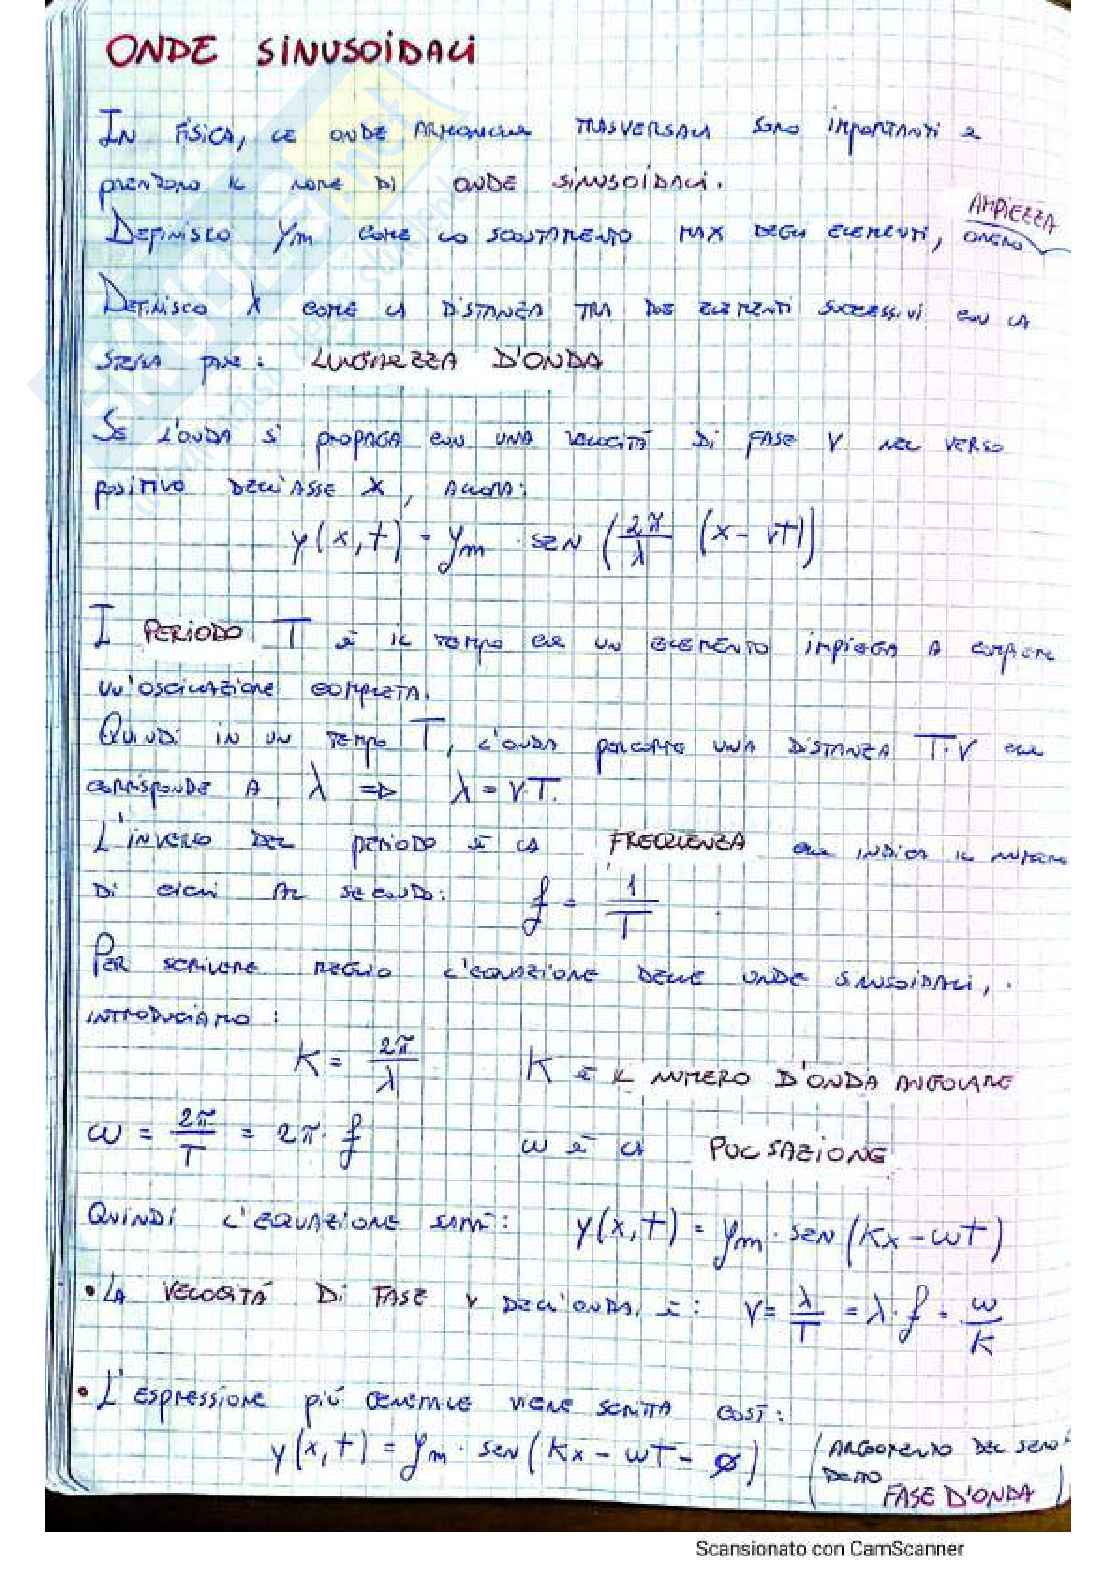 ONDE SINUSOIDALI
IN FISICA, LE ONDE ARMONICHE TRASVERSALI SONO IMPORTANTI E
PRENDONO IL NOME DI ONDE SINUSOIDALI.
DEFINISCO ym COME LO SCOSTAMENTO MAX DEGLI ELEMENTI, OVVERO AMPIEZZA
DEFINISCO λ COME LA DISTANZA TRA DUE ELEMENTI SUCCESSIVI CON LA
STESSA FASE: LUNGHEZZA D'ONDA
SE L'ONDA SI PROPAGA CON UNA VELOCITÀ DI FASE V NEL VERSO
POSITIVO DELL'ASSE X, ALLORA:
y(x,t) = ym · SEN (2π/λ (x - vt))
I PERIODO T È IL TEMPO CHE UN ELEMENTO IMPIEGA A COMPIERE
UN'OSCILLAZIONE COMPLETA.
QUINDI IN UN TEMPO T, L'ONDA PERCORRE UNA DISTANZA T·V CHE
CORRISPONDE A λ => λ = VT.
L'INVERSO DEL PERIODO È LA FREQUENZA CHE INDICA IL NUMERO
DI CICLI AL SECONDO: f = 1/T
PER SCRIVERE MEGLIO L'EQUAZIONE DELLE ONDE SINUSOIDALI,
INTRODUCIAMO:
K = 2π/λ K È IL NUMERO D'ONDA ANGOLARE
ω = 2π/T = 2π · f ω È LA PULSAZIONE
QUINDI L'EQUAZIONE SARÀ: y(x,t) = ym · SEN (Kx - ωt)
• LA VELOCITÁ DI FASE V DELL'ONDA È: V = λ/T = λ · f = ω/K
• L'ESPRESSIONE PIÚ GENERALE VIENE SCRITTA COSÌ:
y(x,t) = ym · SEN (Kx - ωT - ø) (ARGOMENTO DEL SENO È
DETTO FASE D'ONDA)
Scansionato con CamScanner